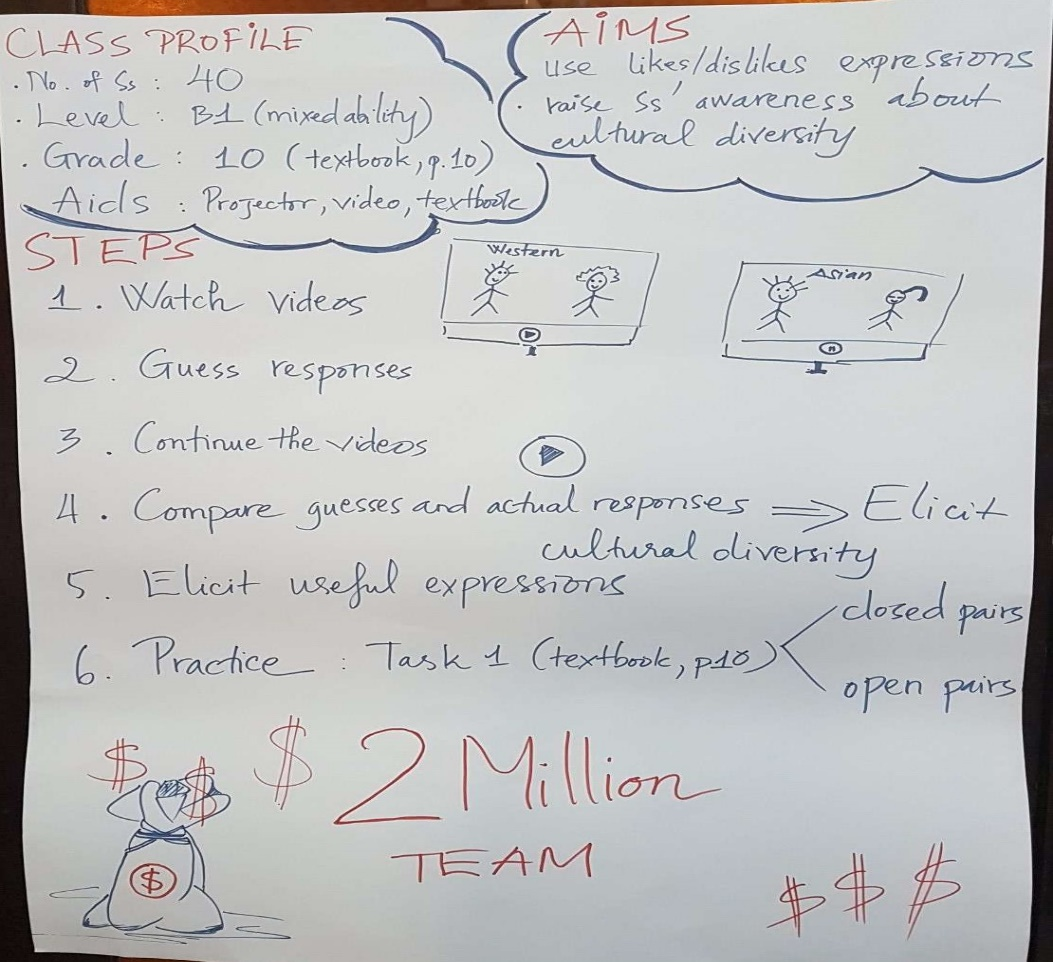 CLASS PROFILE
. No. of Ss : 40
. Level : B1 (mixed ability)
. Grade : 10 (textbook, p.10)
Aids : Projector, video, textbook
AiMS
use likes/dislikes expressions
. raise Ss' awareness about
cultural diversity
STEPS
Western
Asian
1. Watch videos
2. Guess responses
3. Continue the videos
4. Compare guesses and actual responses ⇒ Elicit
cultural diversity
5. Elicit useful expressions
6. Practice : Task 1 (textbook, p10)
closed pairs
open pairs
$ $ $ 2 Million
TEAM
$
$ $ $